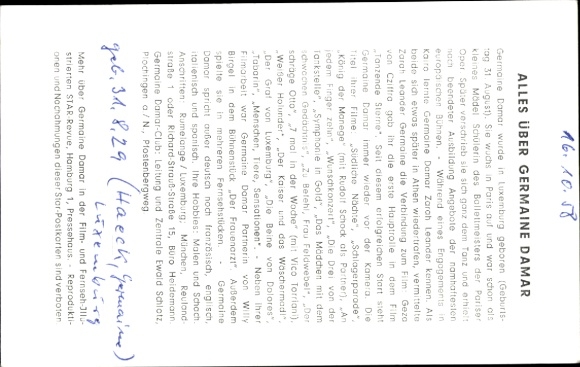 16.10.58
ALLES ÜBER GERMAINE DAMAR
Germaine Damar wurde in Luxemburg geboren (Geburts-
tag 31. August). Sie wuchs in Paris auf und war schon als
kleines Mädel Schülerin des Ballettmeisters der Pariser
Oper. Später verschrieb sie sich ganz dem Tanz und erhielt
nach beendeter Ausbildung Angebote der namhaftesten
europäischen Bühnen. - Während eines Engagements in
Kairo lernte Germaine Damar Zarah Leander kennen. Als
beide sich etwas später in Athen wiedertrafen, vermittelte
Zarah Leander Germaine die Verbindung zum Film. Geza
von Cziffra gab ihr die erste Hauptrolle in dem Film
„Tanzende Sterne". Seit diesem erfolgreichen Start steht
Germaine Damar immer wieder vor der Kamera. Die
Titel ihrer Filme: „Südliche Nächte", „Schlagerparade",
„König der Manege" (mit Rudolf Schock als Partner), „An
jedem Finger zehn", „Wunschkonzert", „Die Drei von der
Tankstelle", „Symphonie in Gold", „Das Mädchen mit dem
schwachen Gedächtnis", „Zu Befehl, Frau Feldwebel", „Der
schräge Otto", „7 mal in der Woche" (mit Vico Torriani),
„Weißer Holunder", „Der Kaiser und das Wäschermädl",
„Der Graf von Luxemburg", „Die Beine von Dolores",
„Tabarin", „Menschen, Tiere, Sensationen". - Neben ihrer
Filmarbeit war Germaine Damar Partnerin von Willy
Birgel in dem Bühnenstück „Der Frauenarzt". Außerdem
spielte sie in mehreren Fernsehstücken. - Germaine
Damar spricht außer deutsch noch französisch, englisch,
italienisch und spanisch. Ihre Hobbies: Malen und Schach
Anschriften: Rumelange/Luxemburg. München, Reuland-
straße 1 oder Richard-Strauß-Straße 15, Büro Heidemann.
Germaine Damar-Club: Leitung und Zentrale Ewald Schlotz,
Plochingen a/N., Pfostenbergweg
geb. 31.8.29 (Haeck, Germaine)
Luxemburg
Mehr über Germaine Damar in der Film- und Fernseh-Illu-
strierten STAR-Revue, Hamburg 1, Pressehaus. - Reprodukti-
onen und Nachahmungen dieser Star-Postkarten sind verboten